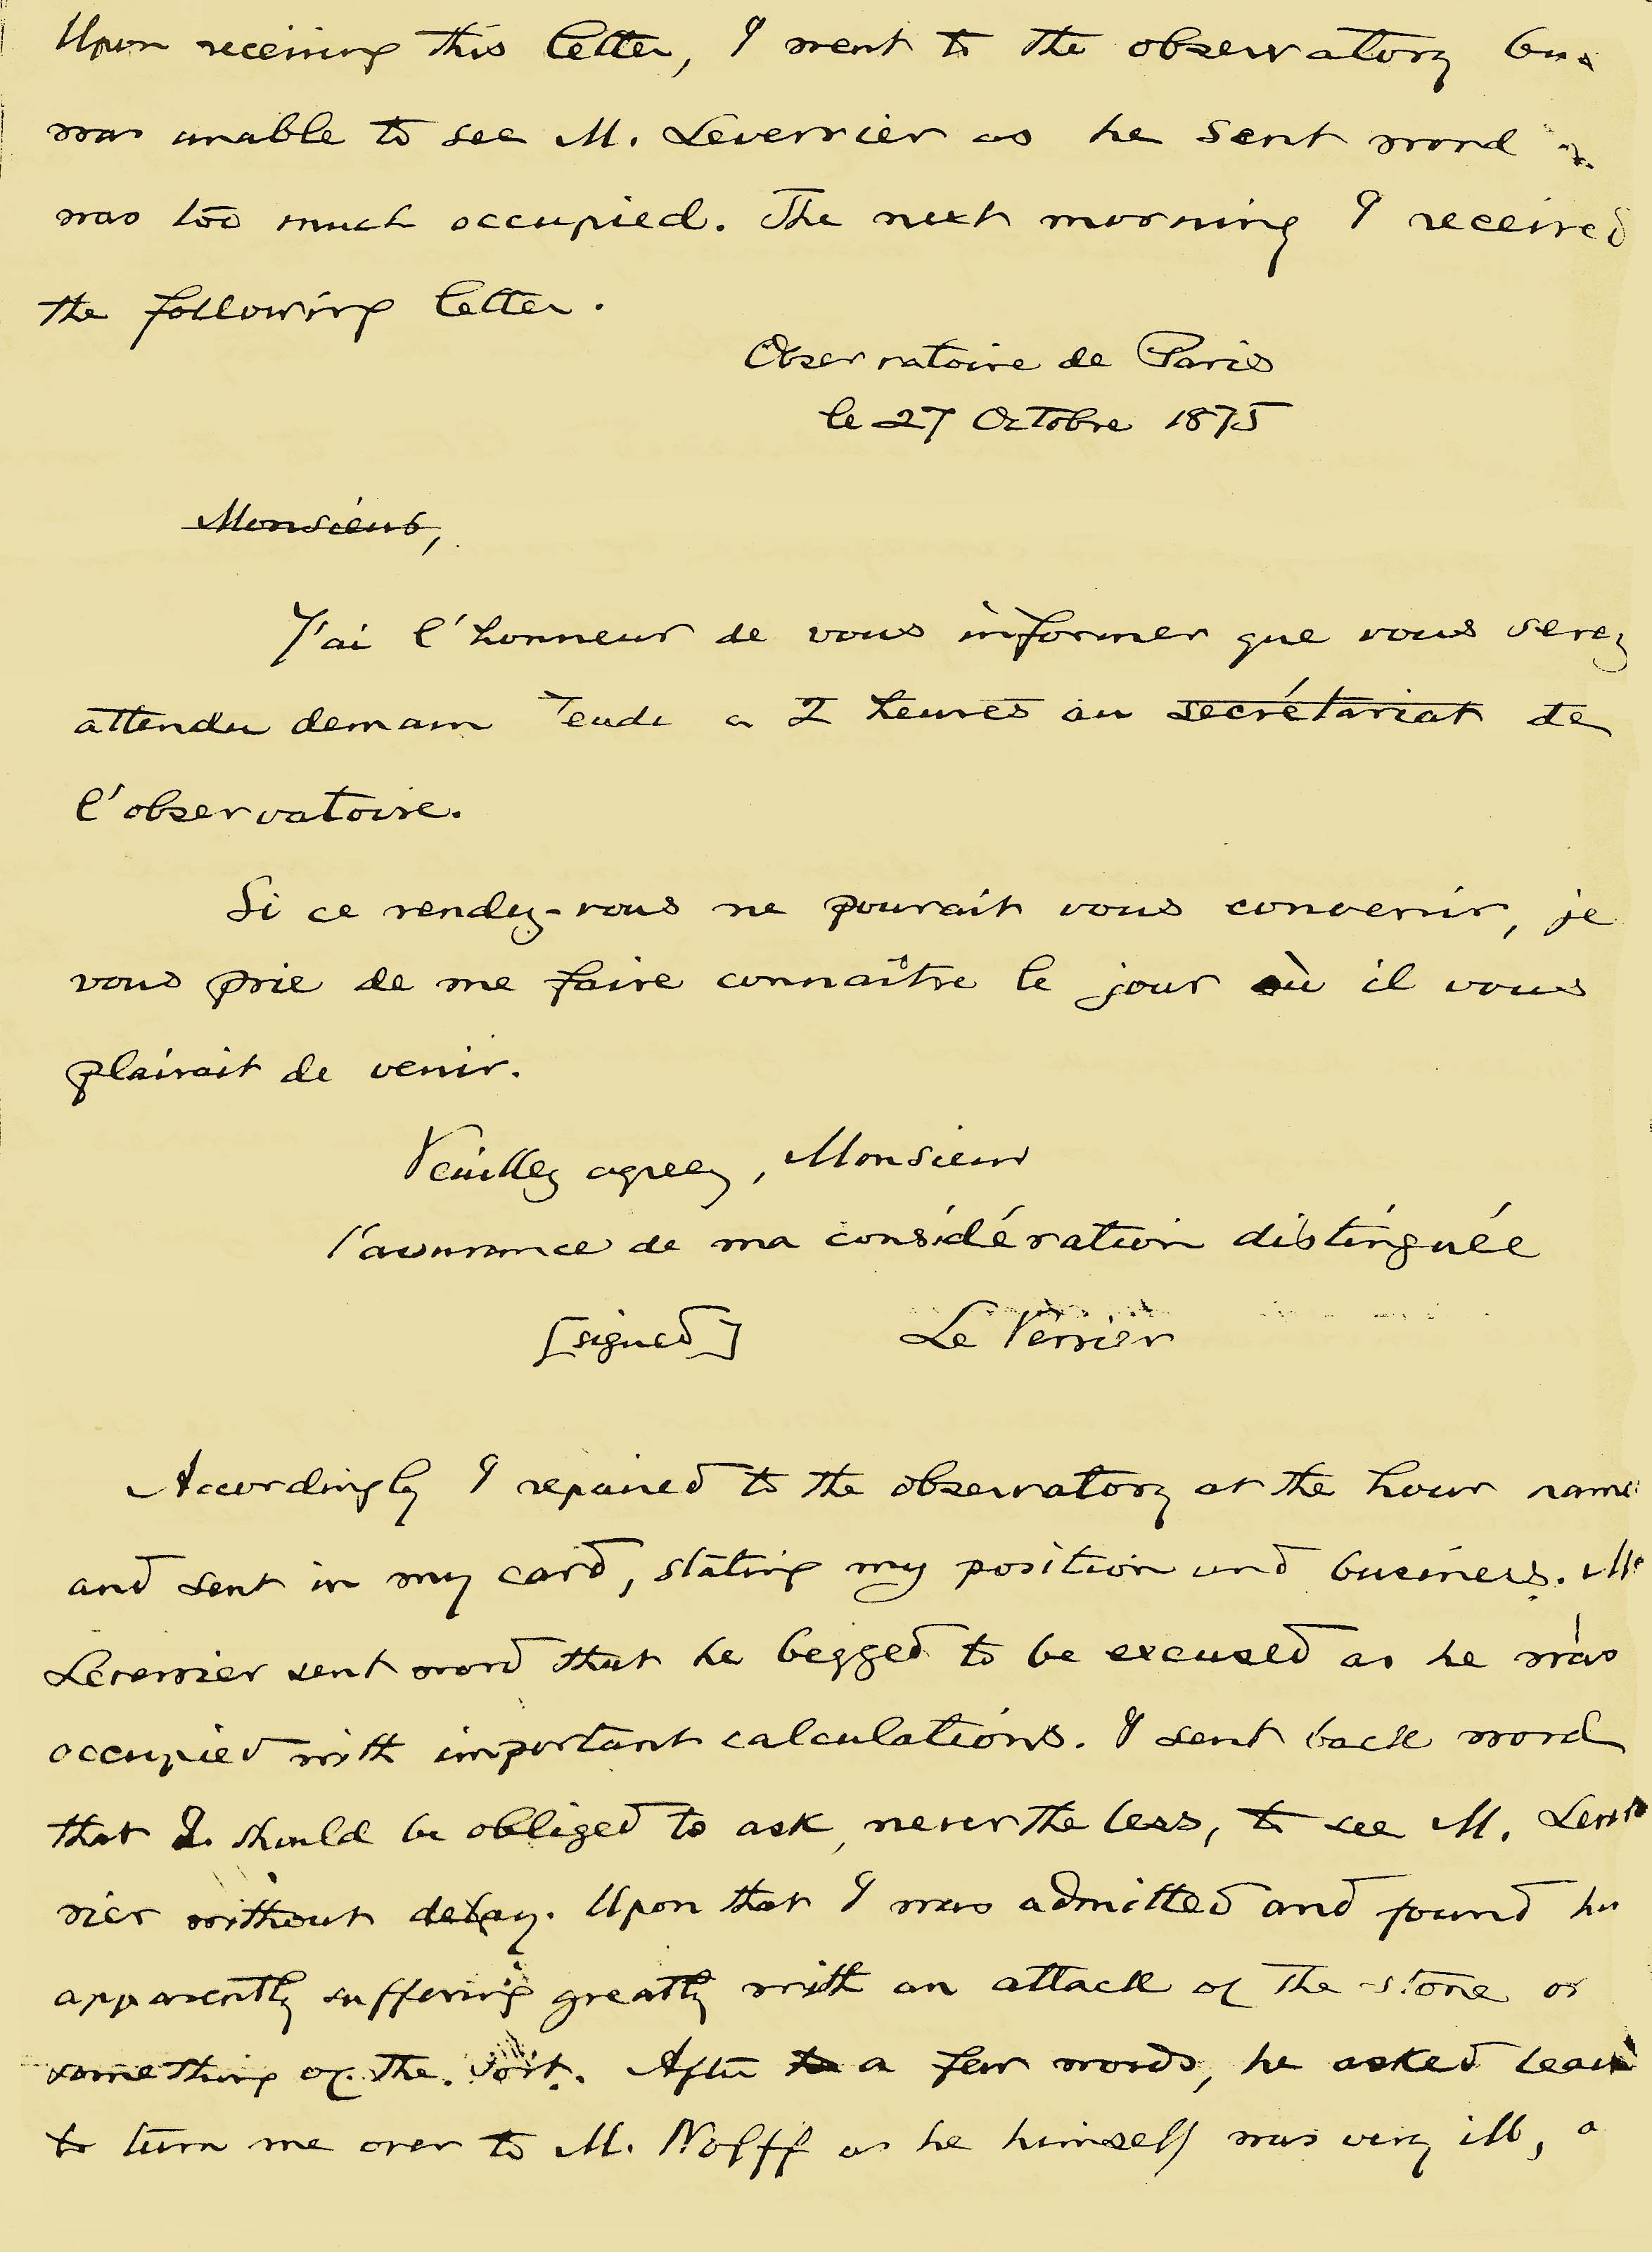 Upon receiving this letter, I went to the observatory but
was unable to see M. Leverrier as he sent word
was too much occupied. The next morning I received
the following letter.
Observatoire de Paris
le 27 Octobre 1875
Monsieur,
J'ai l'honneur de vous informer que vous serez
attendu demain Jeudi a 2 heures au secrétariat de
l'observatoire.
Si ce rendez-vous ne pourait vous convenir, je
vous prie de me faire connaître le jour où il vous
plairait de venir.
Veuillez agreez, Monsieur
l'assurance de ma considération distinguée
[signed] Le Verrier
Accordingly I repaired to the observatory at the hour name
and sent in my card, stating my position and business. M.
Leverrier sent word that he begged to be excused as he was
occupied with important calculations. I sent back word
that I should be obliged to ask, never the less, to see M. Lever
rier without delay. Upon that I was admitted and found
apparently suffering greatly with an attack of the stone or
something of the sort. After a few words, he asked leave
to turn me over to M. Wolff as he himself was very ill, a